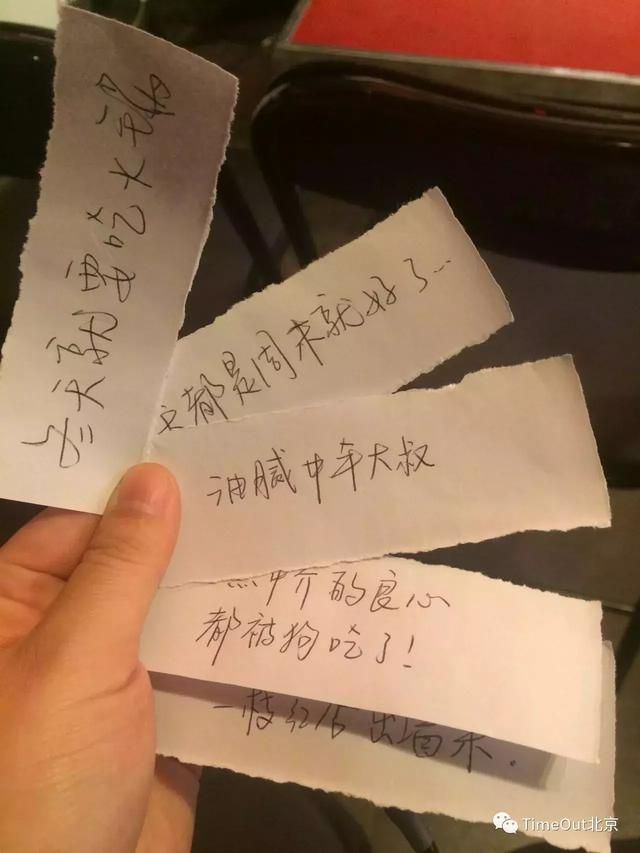 冬天就要吃火锅
都是周末就好了…
油腻中年大叔
中介的良心
都被狗吃了！
一枝红杏出墙来.
TimeOut北京